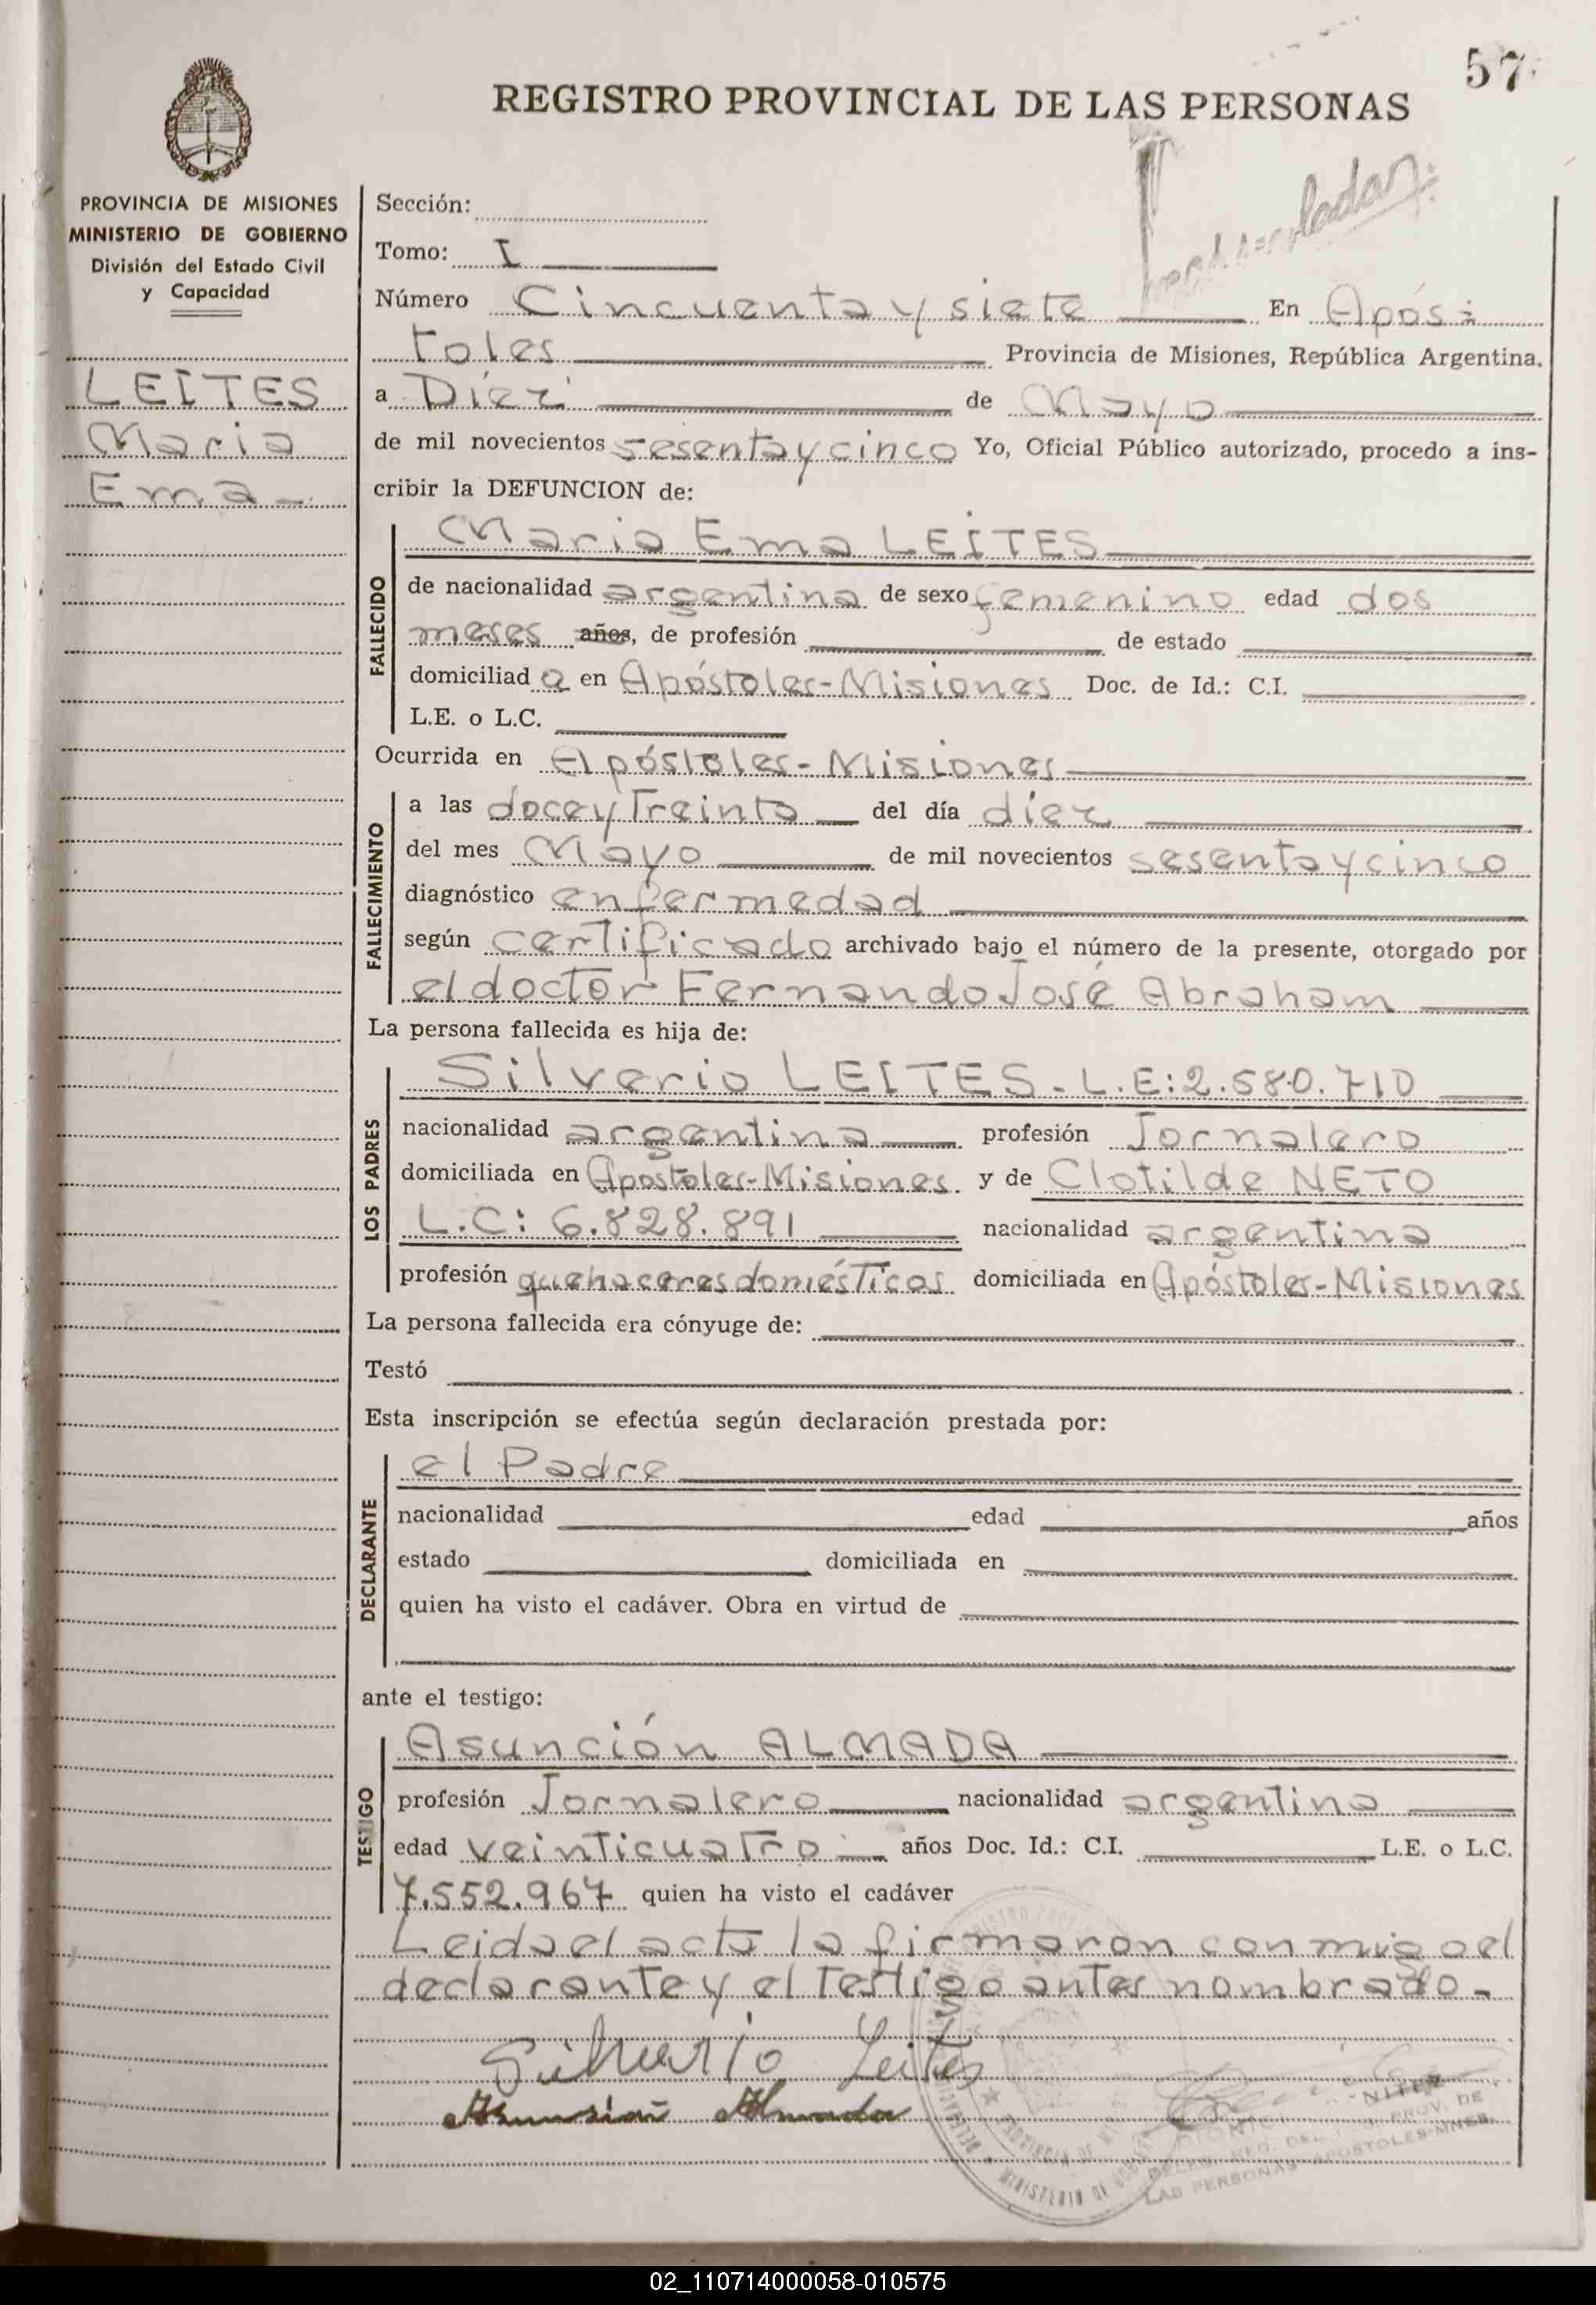 57
REGISTRO PROVINCIAL DE LAS PERSONAS
PROVINCIA DE MISIONES
MINISTERIO DE GOBIERNO
División del Estado Civil
y Capacidad
LEITES
Maria
Ema -
Sección:
Tomo: I
Número Cincuenta y siete En Após=
toles Provincia de Misiones, República Argentina,
a Diez de Mayo
de mil novecientos sesenta y cinco Yo, Oficial Público autorizado, procedo a ins-
cribir la DEFUNCION de:
FALLECIDO
Maria Ema LEITES
de nacionalidad argentina de sexo femenino edad dos
meses años, de profesión de estado
domiciliad a en Apóstoles-Misiones Doc. de Id.: C.I.
L.E. o L.C.
Ocurrida en Apóstoles-Misiones
FALLECIMIENTO
a las doce y Treinta del día diez
del mes Mayo de mil novecientos sesenta y cinco
diagnóstico enfermedad
según certificado archivado bajo el número de la presente, otorgado por
el doctor Fernando José Abraham
La persona fallecida es hija de:
LOS PADRES
Silverio LEITES - L.E: 2.580.710
nacionalidad argentina profesión Jornalero
domiciliada en Apostoles-Misiones y de Clotilde NETO
L.C: 6.828.891 nacionalidad argentina
profesión quehaceres domésticos domiciliada en Apóstoles-Misiones
La persona fallecida era cónyuge de:
Testó
Esta inscripción se efectúa según declaración prestada por:
DECLARANTE
el Padre
nacionalidad edad años
estado domiciliada en
quien ha visto el cadáver. Obra en virtud de
ante el testigo:
TESTIGO
Asunción ALMADA
profesión Jornalero nacionalidad argentina
edad veinticuatro años Doc. Id.: C.I. L.E. o L.C.
7.552.967 quien ha visto el cadáver
Leida el acta la firmaron conmigo el
declarante y el Testigo antes nombrado -
Silverio Leites
Asunsion Almada
PROVINCIA DE
MINISTERIO DE
DELEG. REG. DEL PROV. DE
LAS PERSONAS APOSTOLES-MNES.
02_110714000058-010575